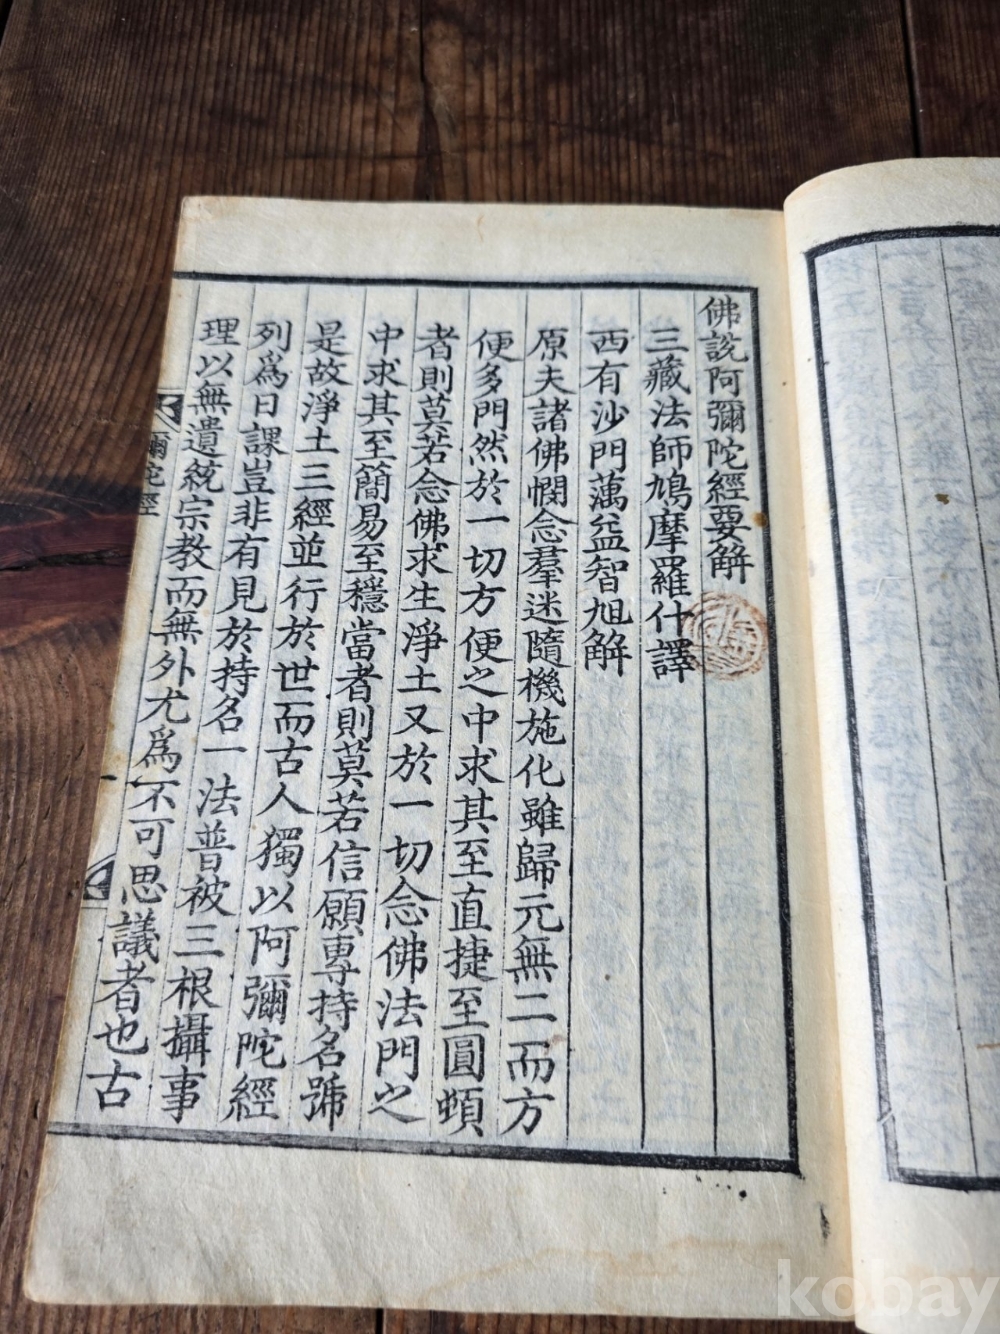 佛說阿彌陀經要解
三藏法師鳩摩羅什譯
西有沙門蕅益智旭解
原夫諸佛憫念羣迷隨機施化雖歸元無二而方
便多門然於一切方便之中求其至直捷至圓頓
者則莫若念佛求生淨土又於一切念佛法門之
中求其至簡易至穩當者則莫若信願專持名號
是故淨土三經並行於世而古人獨以阿彌陀經
列爲日課豈非有見於持名一法普被三根攝事
理以無遺統宗教而無外尤爲不可思議者也古
彌陀經
kobay